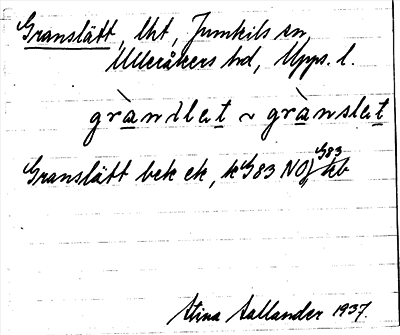 Granslätt, lht, Jumkils sn,
Ulleråkers hd, Upps. l.
grànslet ~ grànslet
Granslätt bek ek, kG83 NO, G83 kb
Stina Aallander 1937.